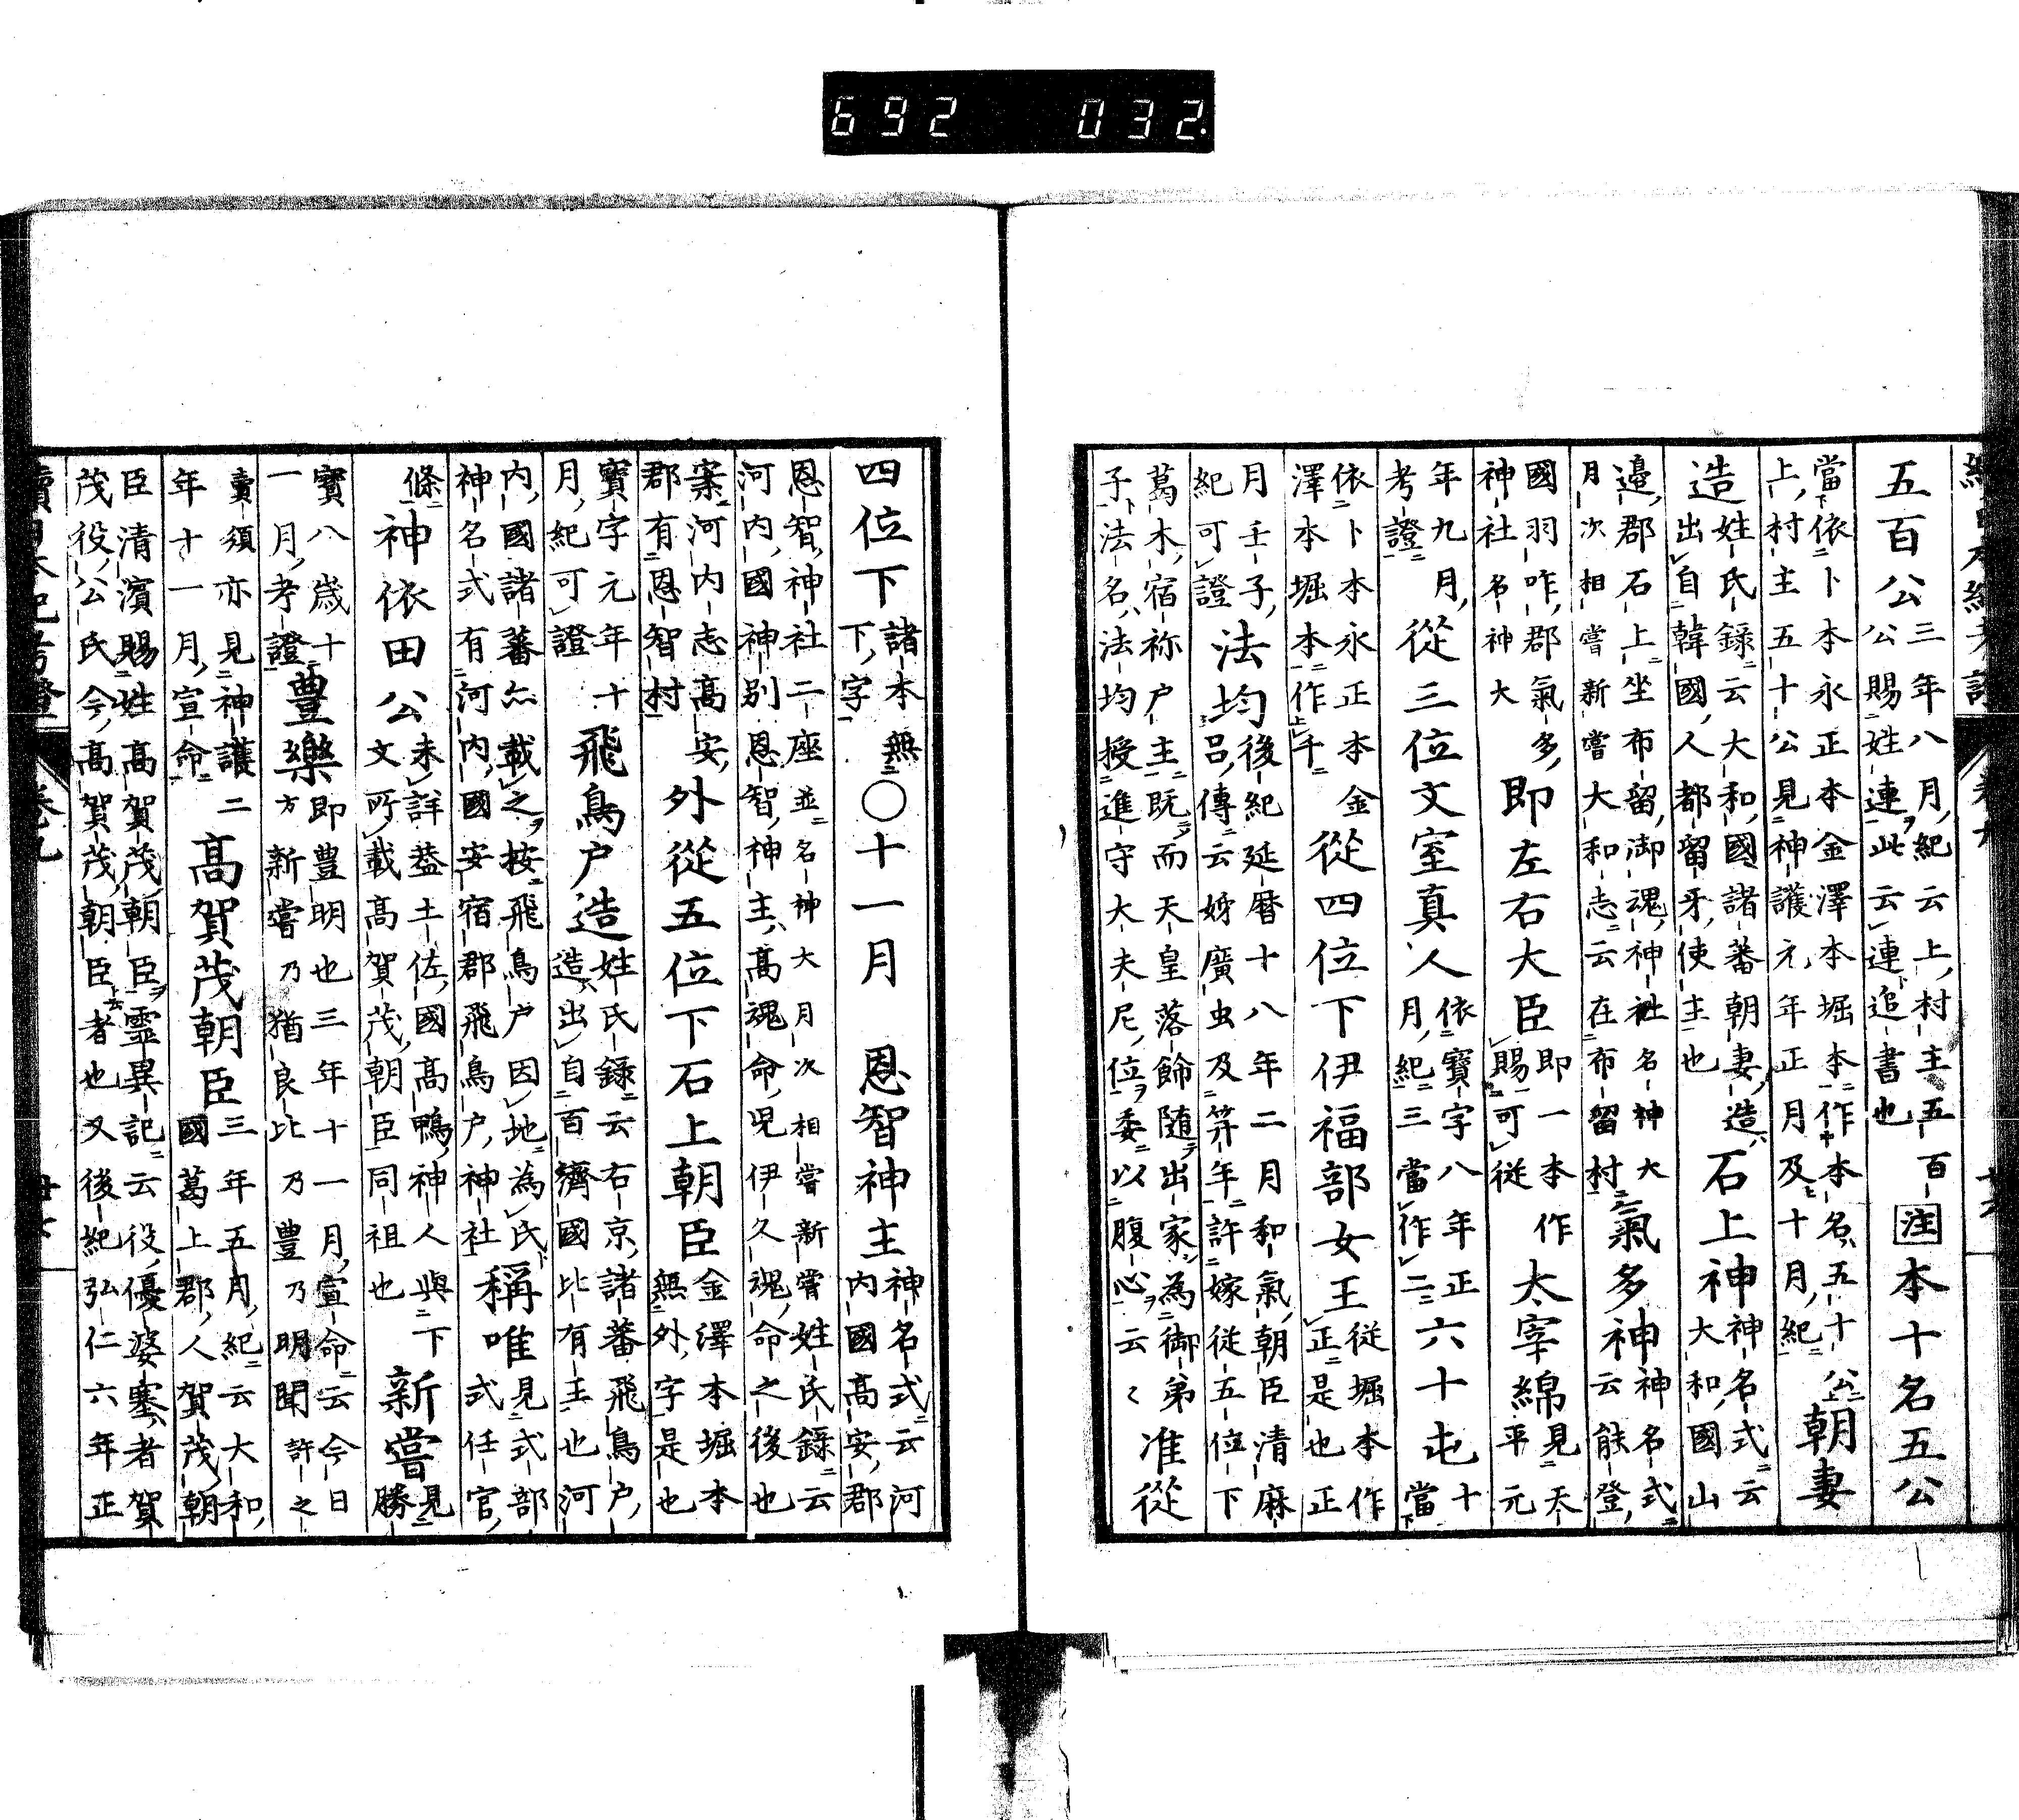 692 032.
五百公三年八月紀云上村主五百
公賜姓連此云連追書也注本十名五公
當依卜本永正本金澤本堀本作本名五十公
上村主五十公見神護元年正月及十月紀朝妻
造姓氏錄云大和國諸蕃朝妻造
出自韓國人都留牙使主也石上神神名式云
大和國山
邊郡石上坐布留御魂神社名神大
月次相嘗新嘗大和志云在布留村氣多神神名式
云能登
國羽咋郡氣多
神社名神大即左右大臣即一本作
賜可従太宰綿見天
平元
年九月
考證從三位文室真人依寶字八年正
月紀三當作二六十屯十
當
依卜本永正本金
澤本堀本作千從四位下伊福部女王従堀本作
正是也正
月壬子
紀可證法均後紀延暦十八年二月和氣朝臣清麻
呂傳云姉廣虫及笄年許嫁従五位下
葛木宿祢户主既而天皇落餝随出家為御弟
子法名法均授進守大夫尼位委以腹心云〻准從
四位下諸本無
下字〇十一月 恩智神主神名式云河
内國高安郡
恩智神社二座並名神大月次相嘗新嘗姓氏錄云
河内國神别恩智神主高魂命兒伊久魂命之後也
案河内志高安
郡有恩智村外從五位下石上朝臣金澤本堀本
無外字是也
寶字元年十
月紀可證飛鳥户造姓氏錄云右京諸蕃飛鳥户
造出自百濟國比有王也河
内國諸蕃亦載之按飛鳥户因地為氏
神名式有河内國安宿郡飛鳥户神社稱唯見式部
式任官
條神依田公未詳葢土佐國高鴨神人與下
文所載高賀茂朝臣同祖也新嘗見
勝
寶八歳十
一月考證豊樂即豊明也三年十一月宣命云今日
方新嘗乃猶良比乃豊乃明聞許之
賣須亦見神護二
年十一月宣命高賀茂朝臣三年五月紀云大和
國葛上郡人賀茂朝
臣清濱賜姓高賀茂朝臣霊異記云役優婆塞者賀
茂役公氏今高賀茂朝臣者也又後紀弘仁六年正